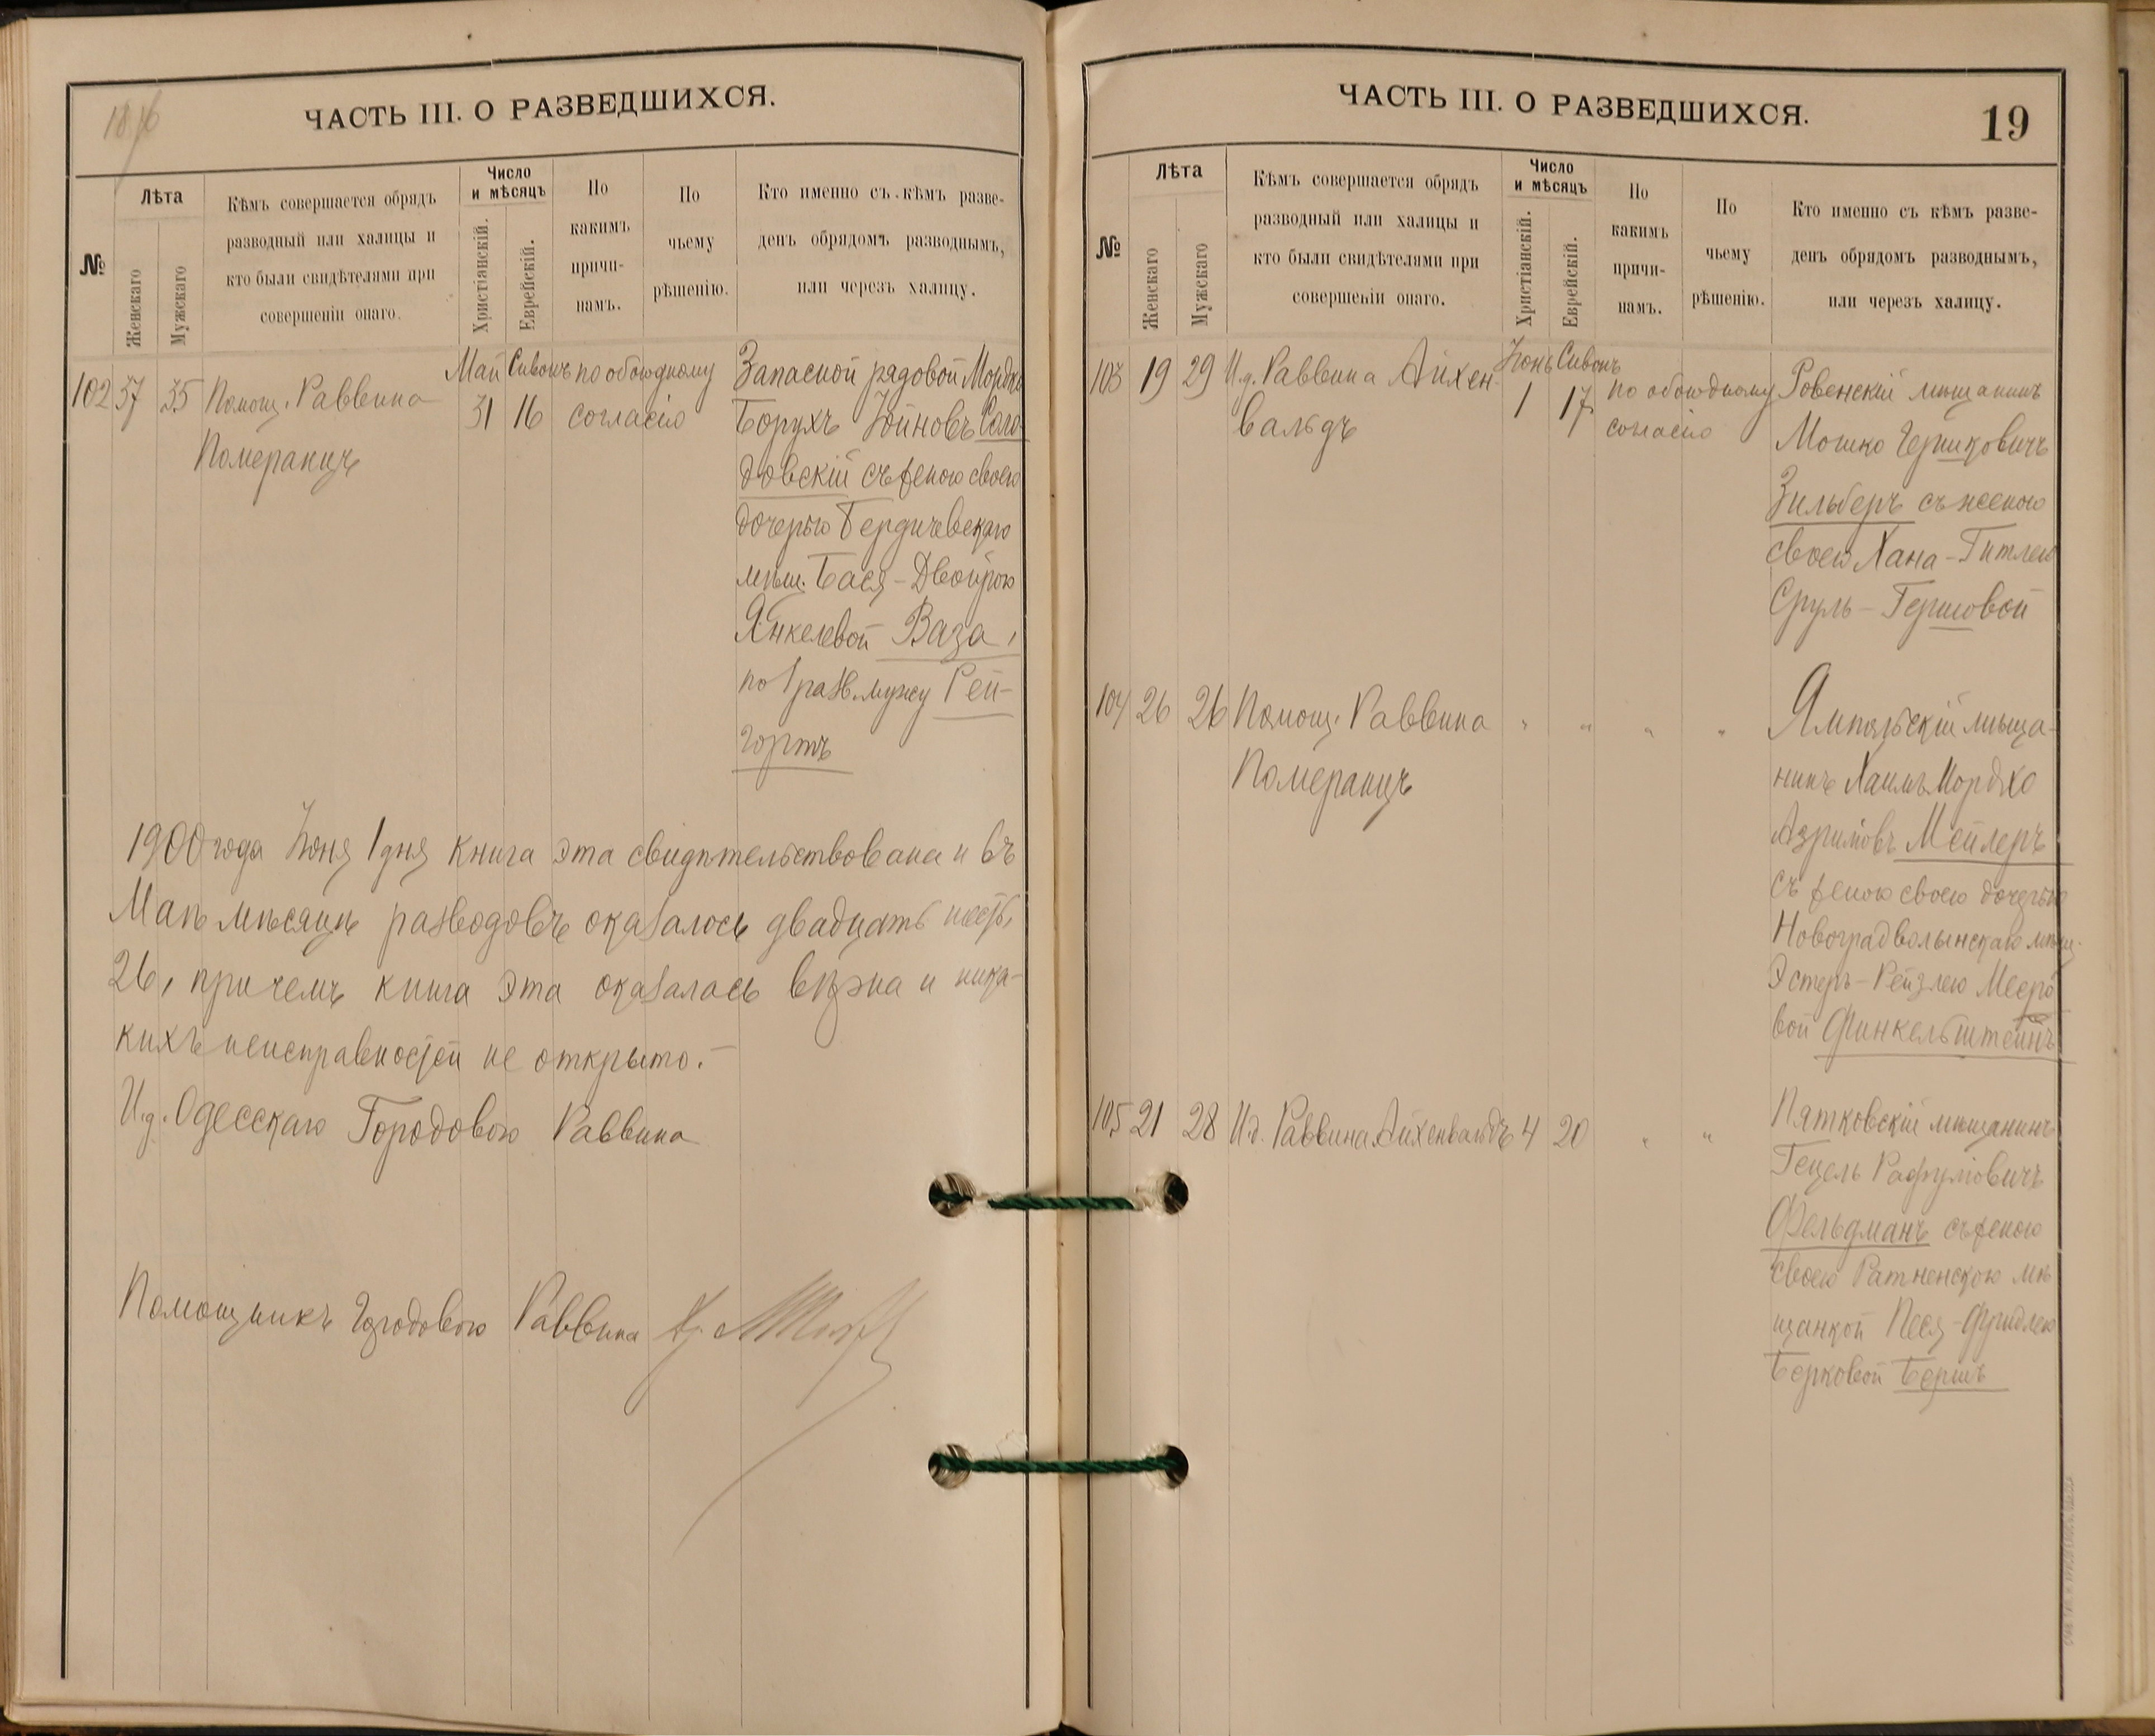 1876
ЧАСТЬ III. О РАЗВЕДШИХСЯ.
№
Лѣта
Женскаго
Мужскаго
Кѣмъ совершается обрядъ
разводный или халицы и
кто были свидѣтелями при
совершеніи онаго.
Число
и мѣсяцъ
Христіанскій.
Еврейскій.
По
какимъ
причи-
намъ.
По
чьему
рѣшенію.
Кто именно съ кѣмъ разве-
денъ обрядомъ разводнымъ,
или черезъ халицу.
102 37 35 Помощ. Раввина
Померанцъ
Май Сивонъ по обоюдному
31 16 согласію
Запасной рядовой Мордко
Борухъ Іойновъ Саго-
довскій съ женою своею
дочерью Бердичевскаго
мѣщ. Бася-Двойрою
Янкелевой Ваза,
по разв. мужу Рей-
гортъ
1900 года Іюня 1 дня книга эта свидѣтельствована и въ
Маѣ мѣсяцѣ разводовъ оказалось двадцать шесть,
26, причемъ книга эта оказалась вѣрна и ника-
кихъ неисправностей не открыто.-
И.д. Одесскаго Городового Раввина
Помощникъ Городового Раввина
ЧАСТЬ III. О РАЗВЕДШИХСЯ.
19
№
Лѣта
Женскаго
Мужскаго
Кѣмъ совершается обрядъ
разводный или халицы и
кто были свидѣтелями при
совершеніи онаго.
Число
и мѣсяцъ
Христіанскій.
Еврейскій.
По
какимъ
причи-
намъ.
По
чьему
рѣшенію.
Кто именно съ кѣмъ разве-
денъ обрядомъ разводнымъ,
или черезъ халицу.
103 19 29 И.д. Раввина Айхен-
вальдъ
Іюнь Сивонъ
1 17 по обоюдному
согласію
Ровенскій мѣщанинъ
Мошко Гершковичъ
Зильберъ съ женою
своею Хана-Гитлею
Сруль-Гершовой
104 26 26 Помощ. Раввина " " " "
Померанцъ
Ямпольскій мѣща-
нинъ Хаимъ Мордко
Азриловъ Мейлеръ
съ женою своею дочерью
Новоградволынскаго мѣщ.
Эстеръ-Рейзлею Мееро-
вой Финкельштейнъ
105 21 28 И.д. Раввина Айхенвальдъ 4 20 " "
Пятковскій мѣщанинъ
Гецель Рафуловичъ
Фельдманъ съ женою
своею Ратненскою мѣ-
щанкой Песя-Фридлею
Берковой Бершъ